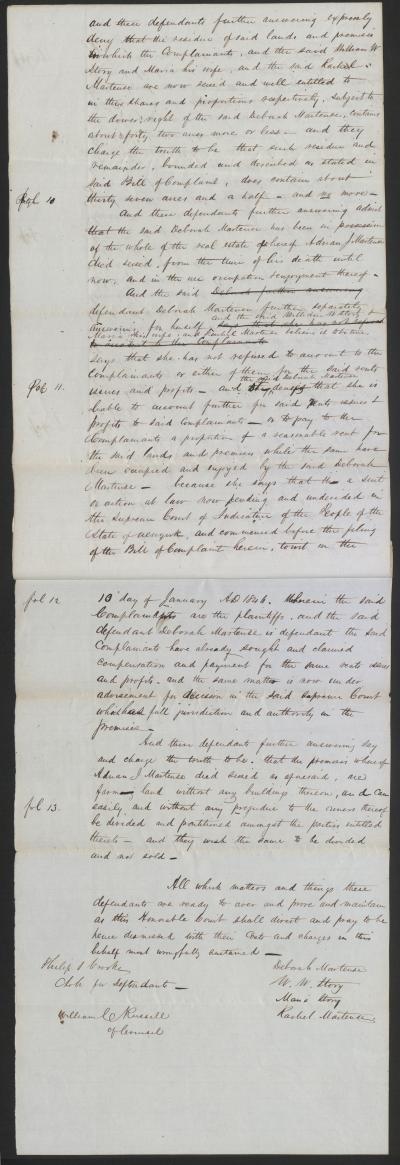 and these defendants further answering expressly
deny that the residue of said lands and premises
in which the Complainants, and the said William W
Story and Maria his wife, and the said Rachel
Martense are now seized and well entitled to
in their shares and proportions respectively, subject to
the dower right of the said Deborah Martense, contains
about forty two acres more or less — and they
charge the truth to be that such residue and
remainder, bounded and described as stated in
said Bill of Complaint, does contain about
thirty seven acres and a half — and no more —
fol 10
And these defendants further answering admit
that the said Deborah Martense has been in possession
of the whole of the real estate whereof Adrian J Martense
died seized, from the time of his death until
now, and in the use occupation & enjoyment thereof —
And the said Deborah further answering
defendant Deborah Martense further separately
and the said William W Story &
answering for herself
Maria his wife, and Rachel Martense
to account to the Complainants
says that she has not refused to account to the
Complainants or either of them for the said rents
the said Deborah Martense
fol 11.
issues and profits — and denies that she is
liable to account further for said rents issues &
profits to said Complainants — or to pay to the
Complainants a proportion of a reasonable rent for
the said lands and premises while the same have
been occupied and enjoyed by the said Deborah
Martense — because she says that a suit
or action at law now pending and undecided in
the Supreme Court of Judicature of the People of the
State of New York, and commenced before the filing
of the Bill of Complaint herein, to wit in the
fol 12
13 day of January AD 1846. Wherein the said
Complainants are the plaintiffs, and the said
defendant Deborah Martense is defendant the said
Complainants have already sought and claimed
compensation and payment for the same rents issues
and profits, and the same matter is now under
advisement for decision in the said Supreme Court
which has full jurisdiction and authority in the
premises —
And these defendants further answering say
and charge the truth to be, that the premises whereof
Adrian J Martense died seized as aforesaid, are
farm land without any buildings thereon, and can
fol 13.
easily and without any prejudice to the owners thereof
be divided and partitioned amongst the parties entitled
thereto — and they wish the same to be divided
and not sold —
All which matters and things these
defendants are ready to aver and prove and maintain
as this Honorable Court shall direct and pray to be
hence dismissed with their Costs and charges in this
behalf most wrongfully sustained —
Philip S Crooke
Solr for Defendants —
William C Russell
of Counsel
Deborah Martense
W. W. Story
Maria Story
Rachel Martense